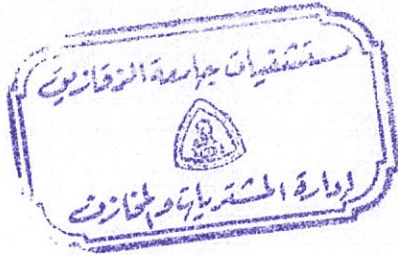 مستشفيات جامعة الزقازيق
إدارة المشتريات والمخازن